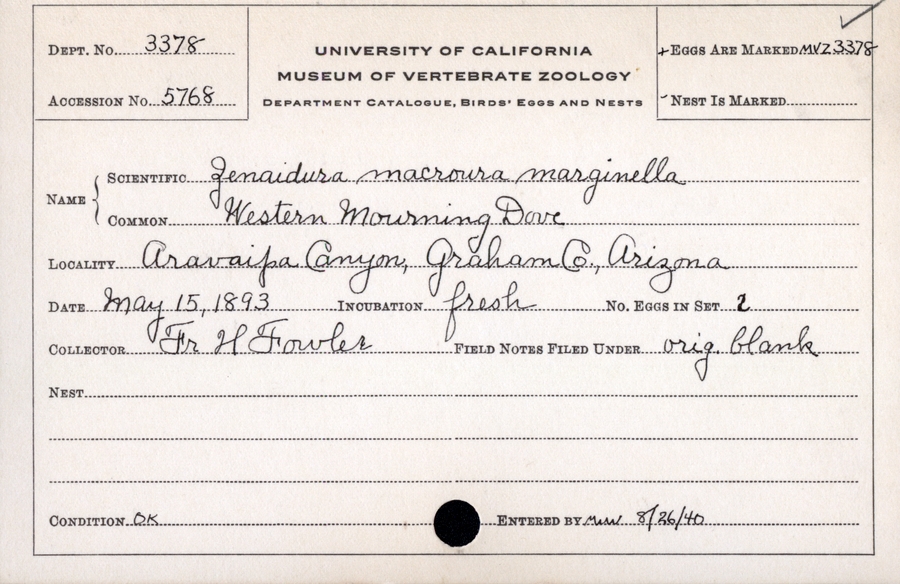 DEPT. No. 3378
ACCESSION No. 5768
UNIVERSITY OF CALIFORNIA
MUSEUM OF VERTEBRATE ZOOLOGY
DEPARTMENT CATALOGUE, BIRDS' EGGS AND NESTS
EGGS ARE MARKED MVZ 3378
NEST IS MARKED
NAME
SCIENTIFIC Zenaidura macroura marginella
COMMON Western Mourning Dove
LOCALITY Aravaipa Canyon, Graham Co., Arizona
DATE May 15, 1893 INCUBATION fresh No. EGGS IN SET 2
COLLECTOR Fr H Fowler FIELD NOTES FILED UNDER orig. blank
NEST
CONDITION OK ENTERED BY 8/26/40